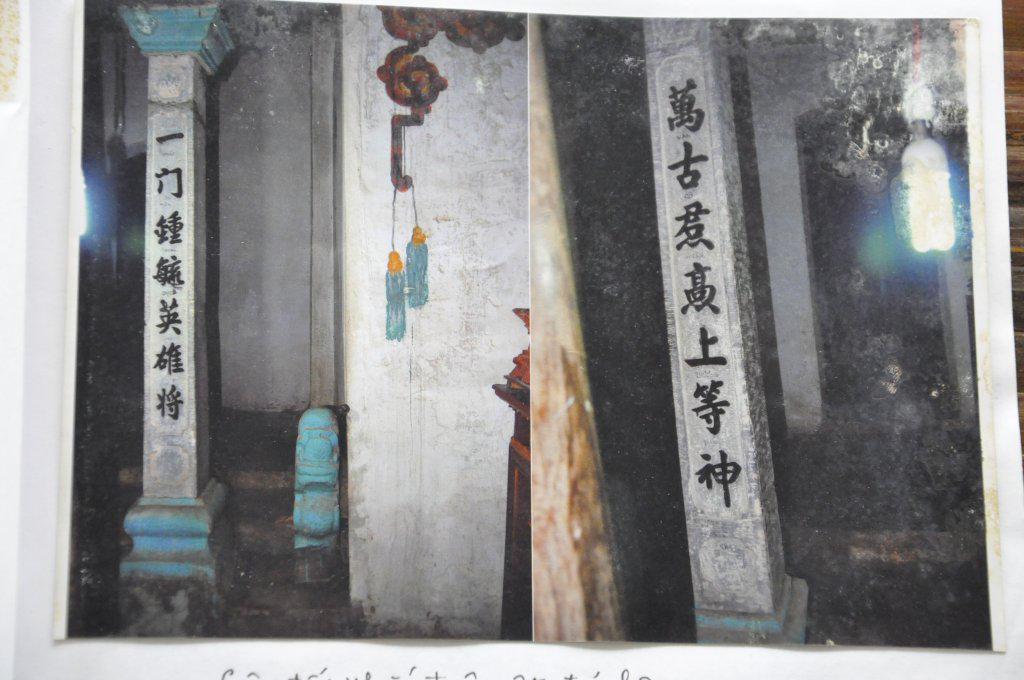 一门鍾毓英雄将
萬古焄髙上等神